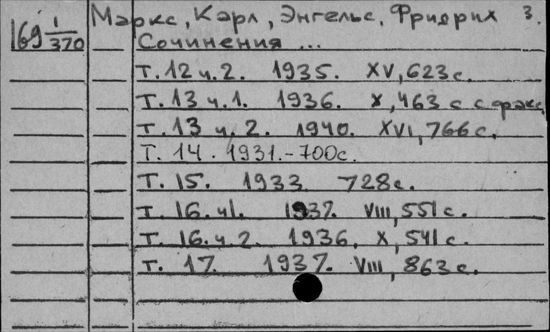 169 1/370 Маркс, Карл, Энгельс, Фридрих 3.
Сочинения ...
т. 12 ч. 2. 1935. XV, 623 с.
т. 13 ч. 1. 1936. X, 463 с с факс
т. 13 ч. 2. 1940. XVI, 766 с.
Т. 14. 1931.-700с.
т. 15. 1933 728 с.
т. 16. ч1. 1937. VIII, 551 с.
т. 16. ч. 2. 1936. X, 541 с.
т. 17. 1937. VIII, 863 с.